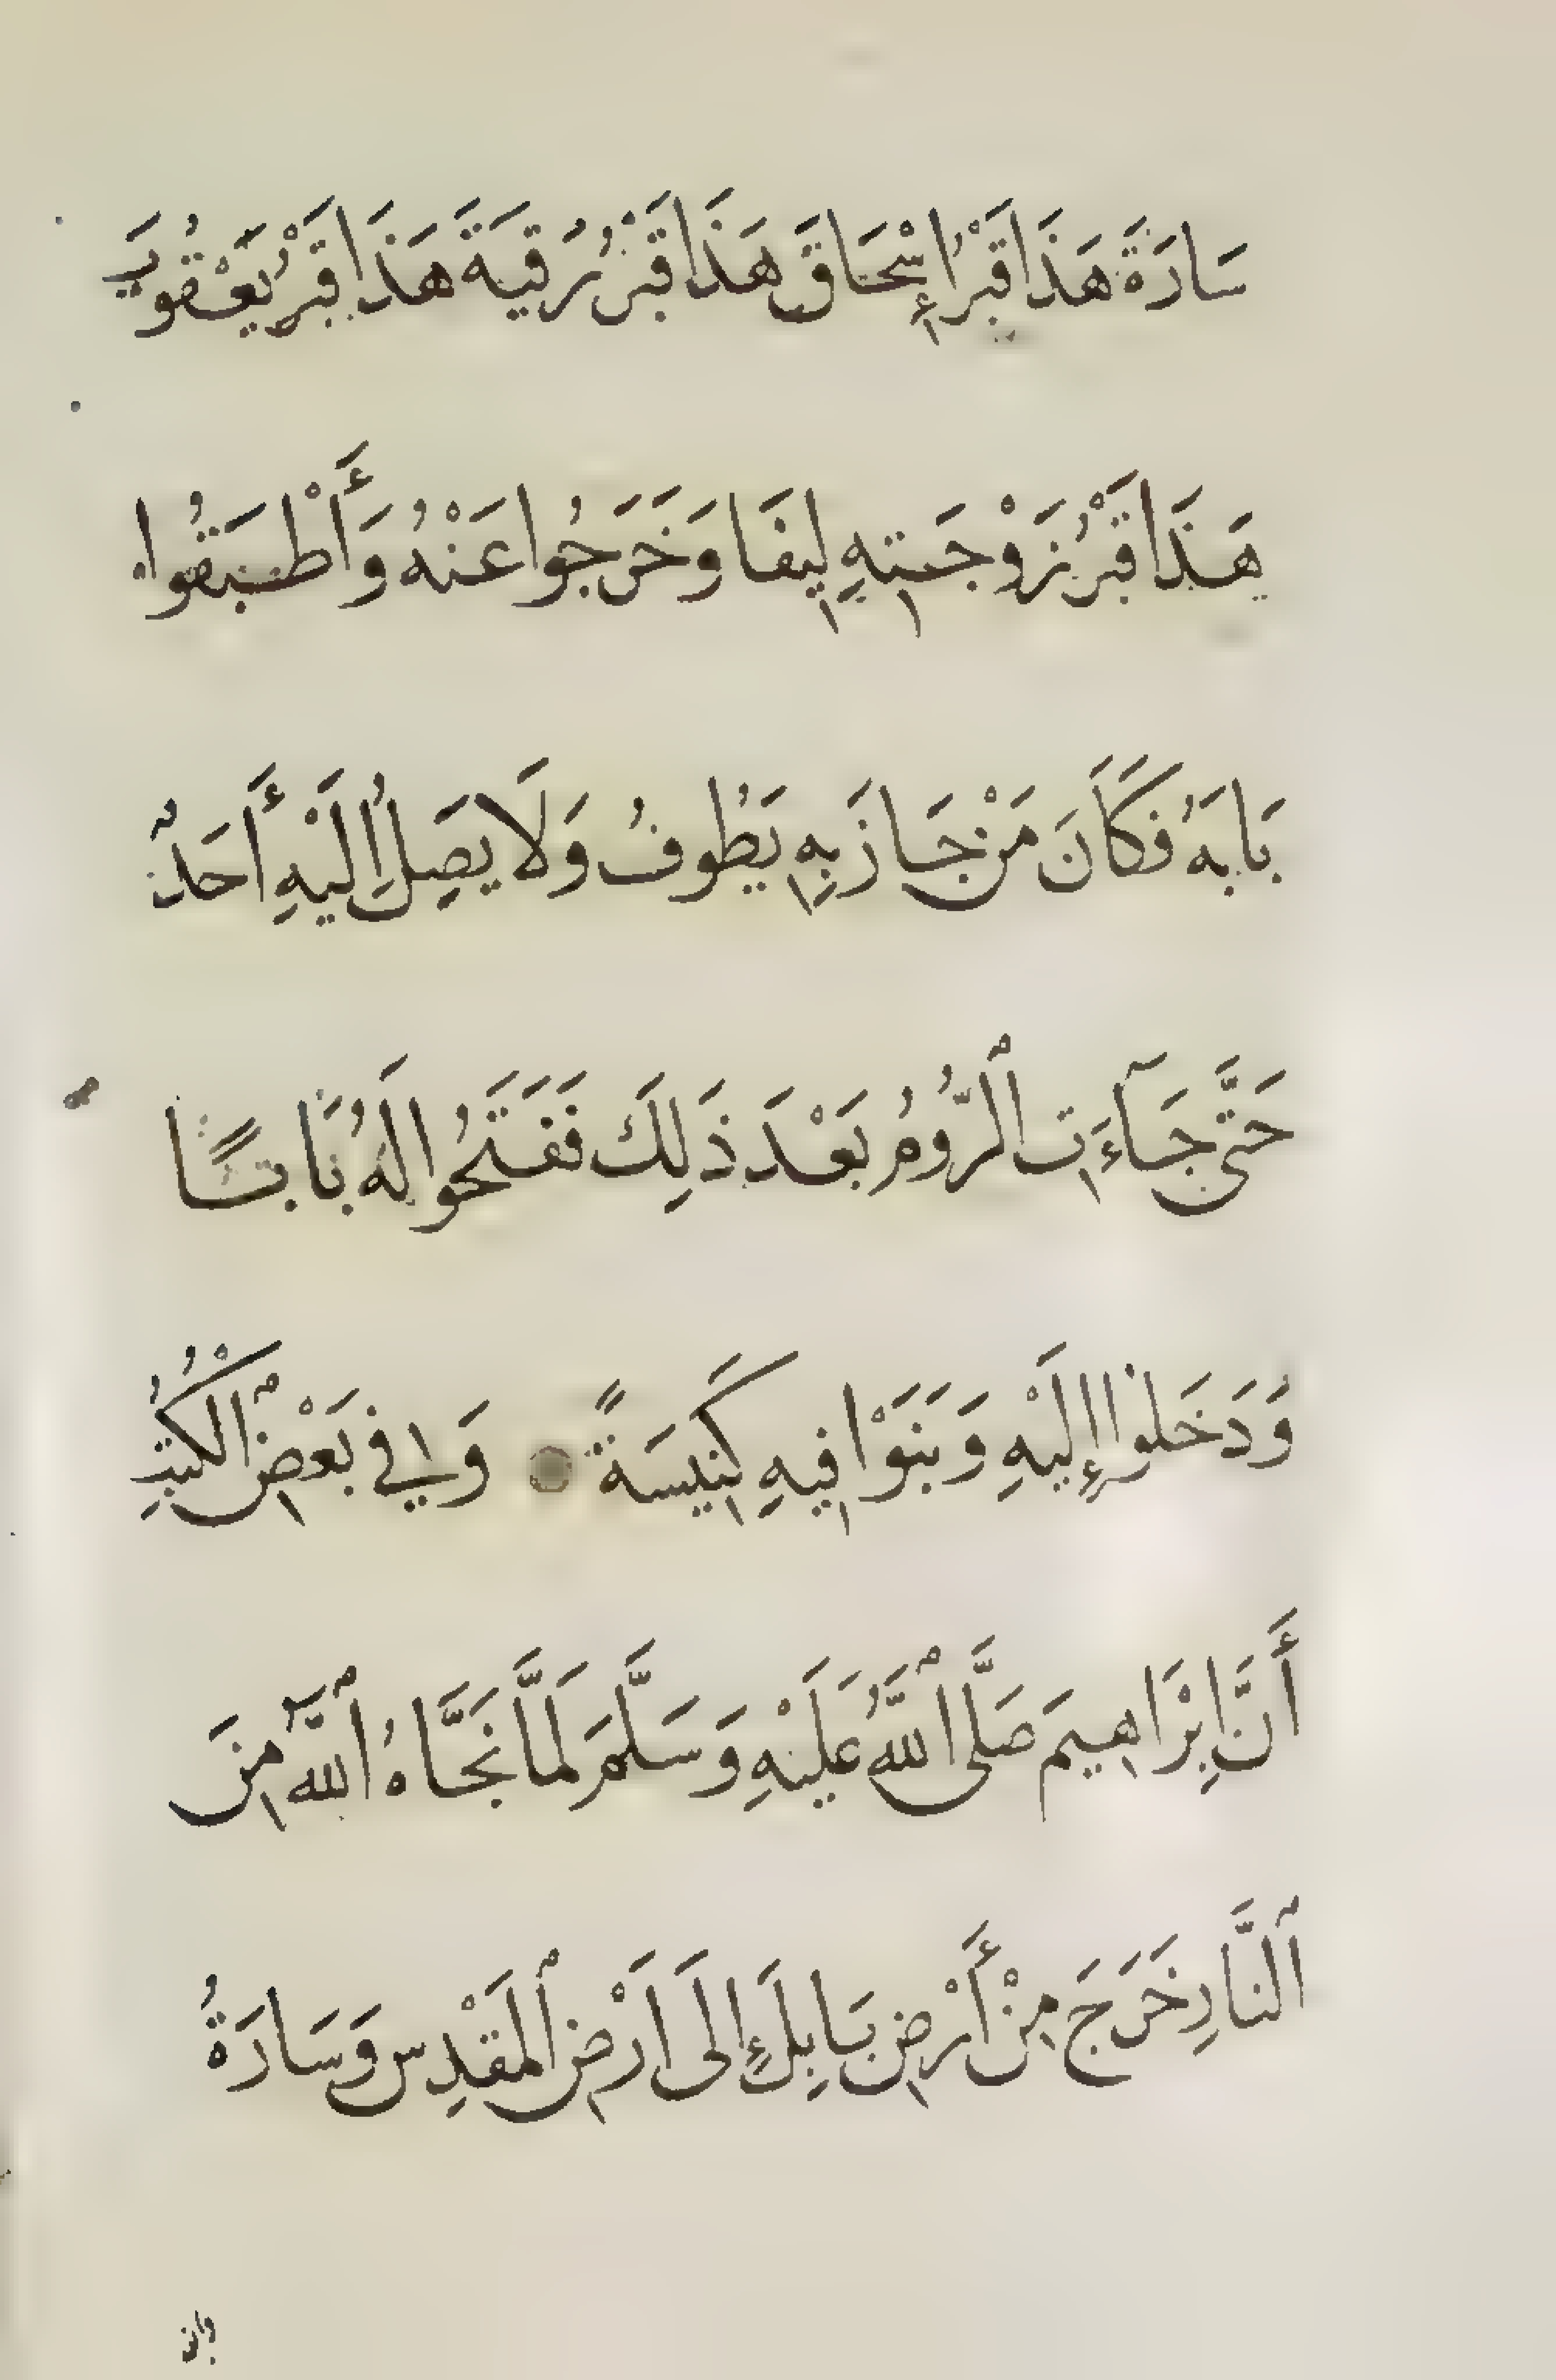 سَارَةَ هَذَا قَبْرُ إِسْحَاقَ هَذَا قَبْرُ رُقِيَةَ هَذَا قَبْرُ يَعْقُوبَ
هَذَا قَبْرُ زَوْجَتِهِ لِيفَا وَخَرَجُوا عَنْهُ وَأَطْبَقُوا
بَابَهُ فَكَانَ مَنْ جَازَ بِهِ يَطُوفُ وَلَا يَصِلُ إِلَيْهِ أَحَدٌ
حَتَّى جَآءَتِ ٱلرُّومُ بَعْدَ ذَلِكَ فَفَتَحُوا لَهُ بَابًا
وَدَخَلُوا إِلَيْهِ وَبَنَوْا فِيهِ كَنِيسَةً وَفِي بَعْضِ ٱلْكُتُبِ
أَنَّ إِبْرَاهِيمَ صَلَّى ٱللَّهُ عَلَيْهِ وَسَلَّمَ لَمَّا نَجَّاهُ ٱللَّهُ مِنَ
ٱلنَّارِ خَرَجَ مِنْ أَرْضِ بَابِلَ إِلَى اَرْضِ ٱلْمَقْدِسِ وَسَارَةُ